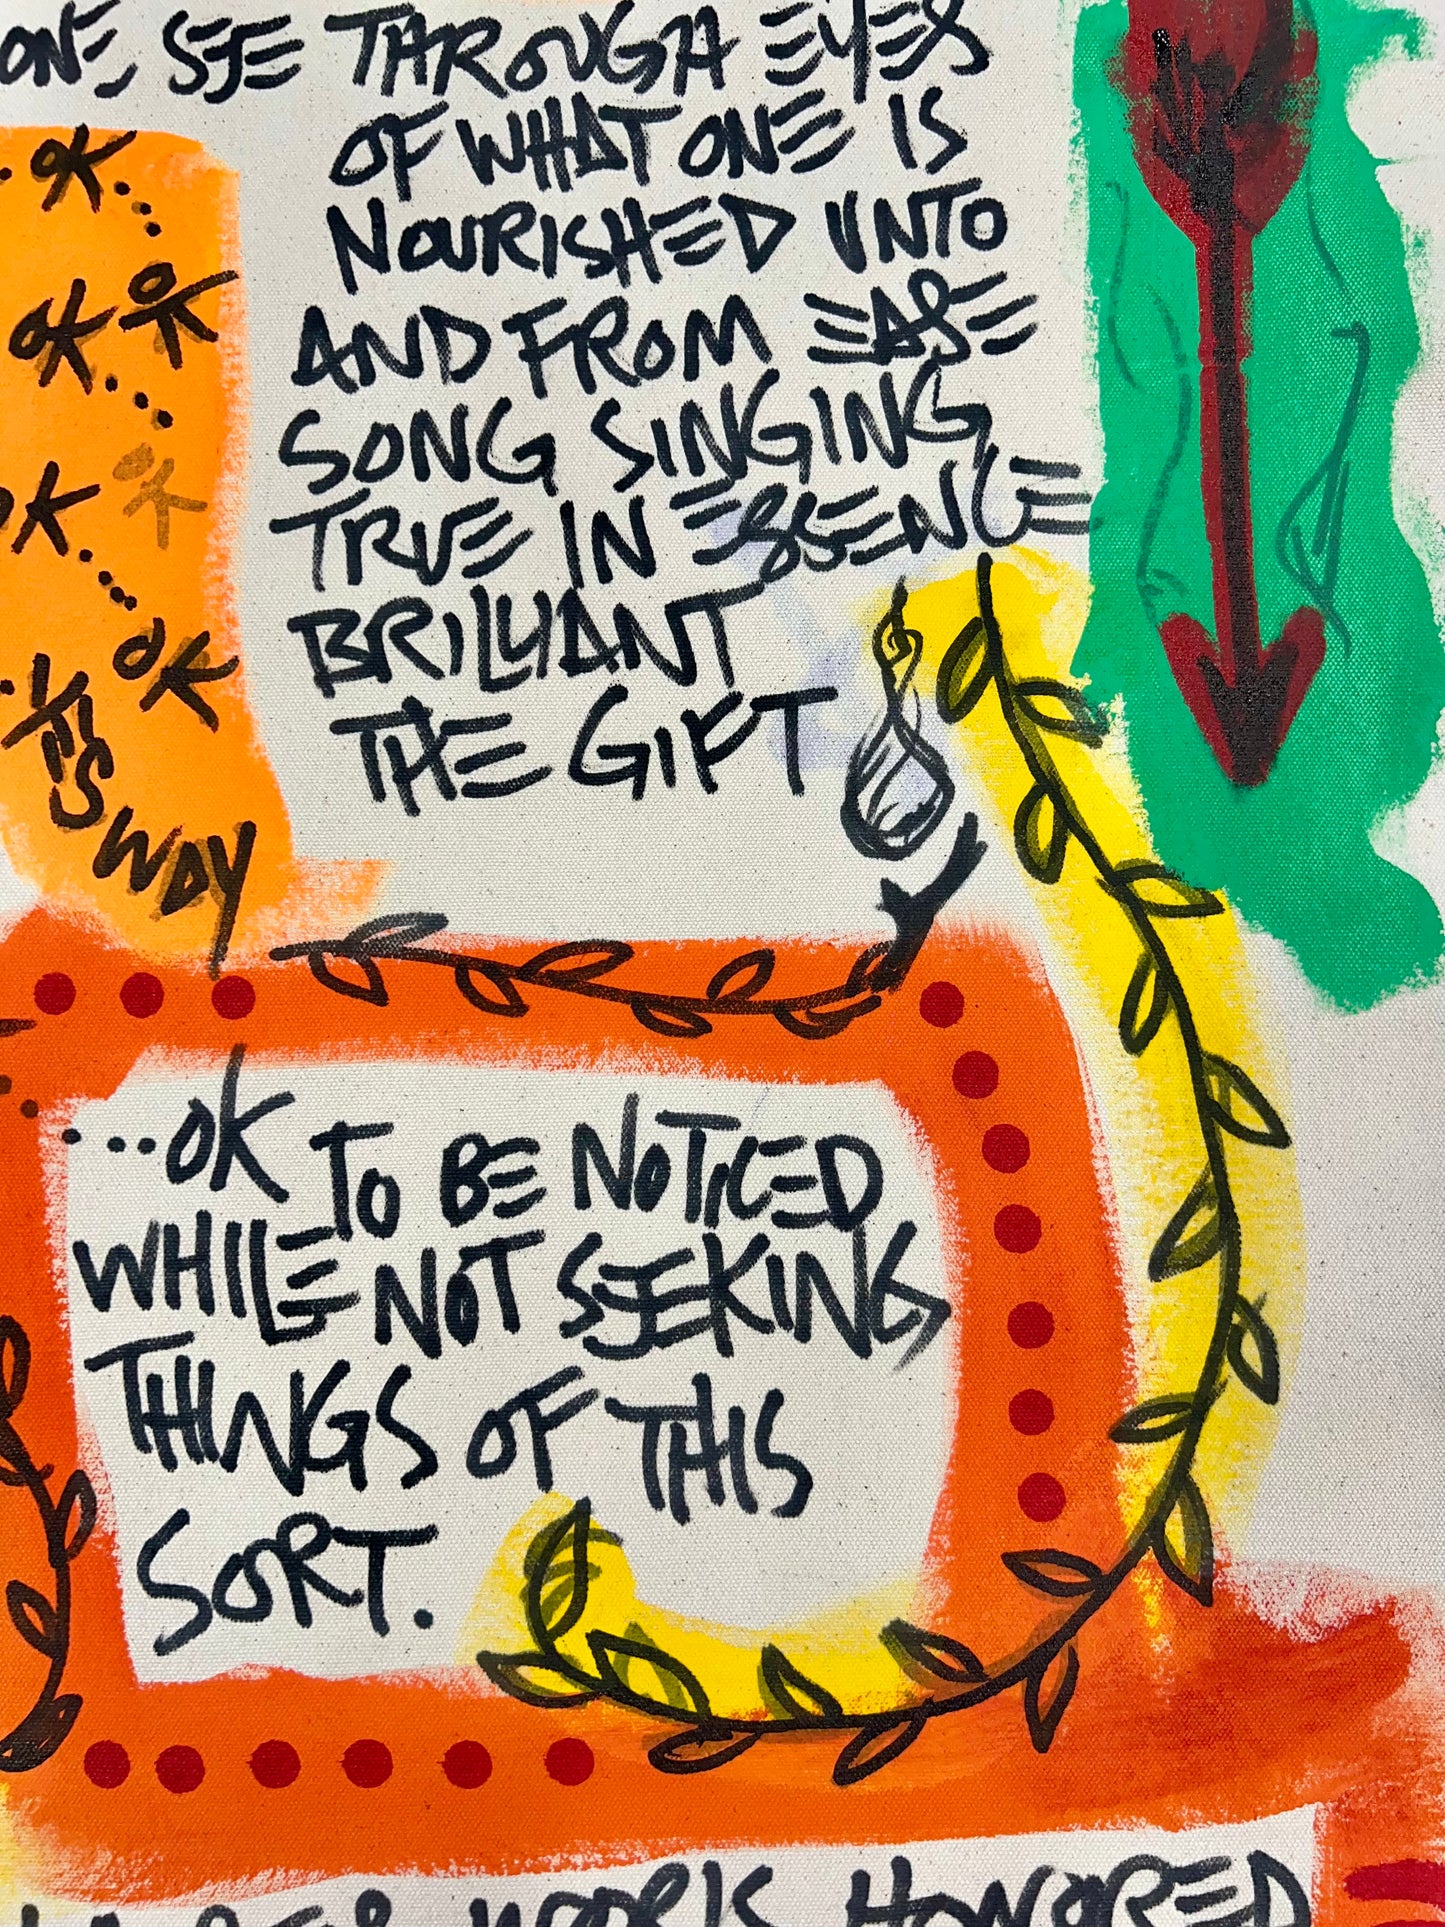 ONE SEE THROUGH EYES
OF WHAT ONE IS
NOURISHED UNTO
AND FROM EASE
SONG SINGING
TRUE IN ESSENCE
BRILLIANT
THE GIFT
..OK...
OK...OK
OK....OK
...OK
ITS WAY
...OK TO BE NOTICED
WHILE NOT SEEKING
THINGS OF THIS
SORT.
WORK HONORED